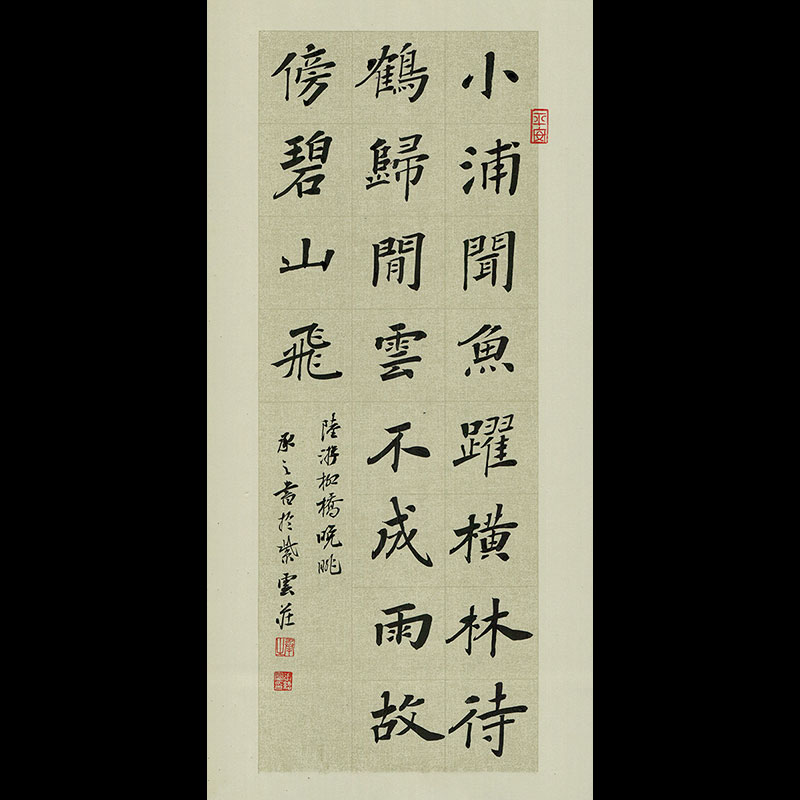 小浦聞魚躍橫林待
鶴歸閒雲不成雨故
傍碧山飛
陸游柳橋晚眺
承之書於紫雲莊
平安